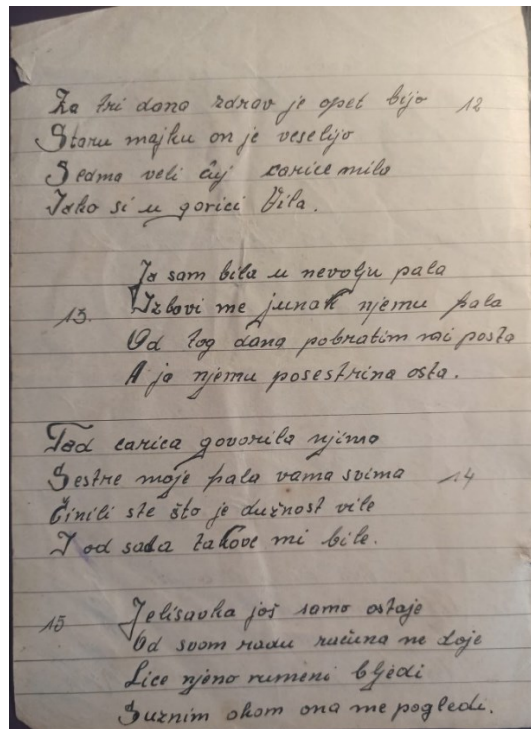 Za tri dana zdrav je opet bijo 12
Staru majku on je veselijo
Sedma veli čuj carice mila
Jako si u gorici Vila.
Ja sam bila u nevolju pala
13. Izbavi me junak njemu fala
Od tog dana pobratim mi posta
A ja njemu posestrina osta.
Tad carica govorila njima
Sestre moje fala vama svima 14
Činili ste što je dužnost vile
I od sada takove mi bile.
15 Jelisavka još samo ostaje
Od svom radu računa ne daje
Lice njeno rumeni bljedi
Suznim okom ona me pogledi.